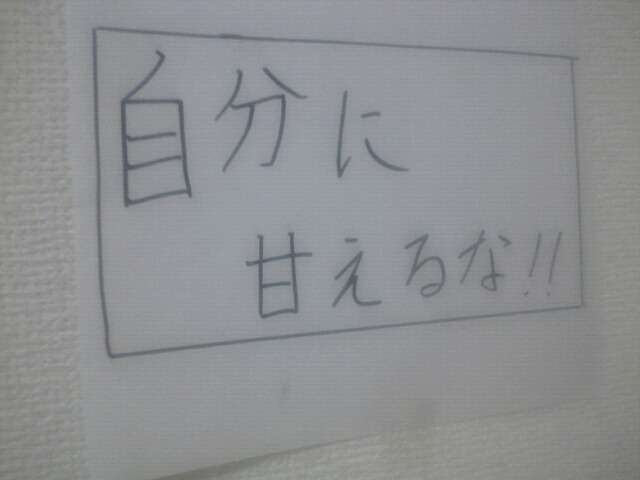 自分に
甘えるな!!